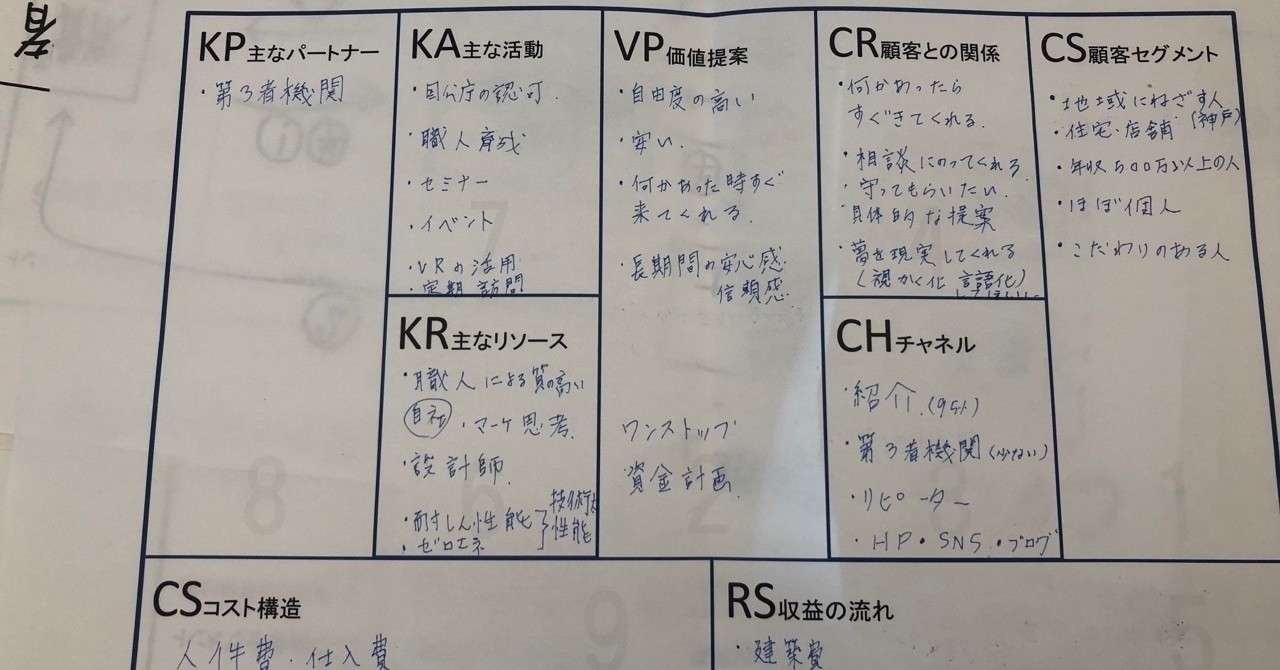 者
KP主なパートナー
・第3者機関
KA主な活動
・国公庁の認可.
・職人育成
・セミナー
・イベント
・VRの活用
・定期訪問
KR主なリソース
・職人による質の高い
自社・マーケ思考.
・設計師.
・耐しん性能
・ゼロエネ
技術力
性能
VP価値提案
・自由度の高い
・安い.
・何かあった時すぐ
来てくれる.
・長期間の安心感.
信頼感.
ワンストップ
資金計画.
CR顧客との関係
・何かあったら
すぐきてくれる.
・相談にのってくれる.
・守ってもらいたい.
・具体的な提案
・夢を現実してくれる
(視かく化 言語化)
CHチャネル
・紹介.(95%)
・第3者機関(少ない)
・リピーター
・HP・SNS・ブログ
CS顧客セグメント
・地域にねざす人
(神戸)
・住宅・店舗
・年収500万以上の人
・ほぼ個人
・こだわりのある人
CSコスト構造
人件費・仕入費
RS収益の流れ
・建築費
8
7
6
2
9
3
1
5